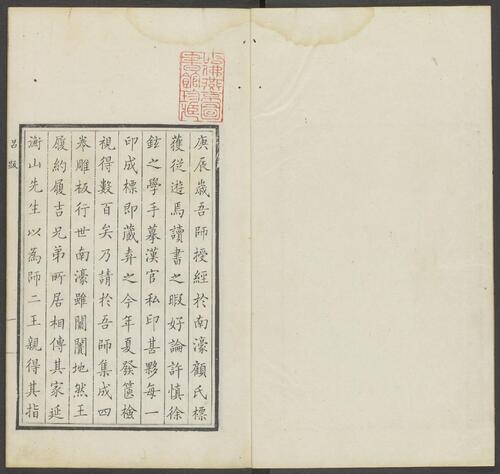 庚辰歲吾師授經於南濠顧氏標
獲從遊焉讀書之暇好論許慎徐
鉉之學手摹漢官私印甚夥每一
印成標即藏弆之今年夏發篋檢
視得數百矣乃請於吾師集成四
卷雕板行世南濠雖闤闠地然王
履約履吉兄弟所居相傳其家延
謝山先生以為師二王親得其指
呂跋
一